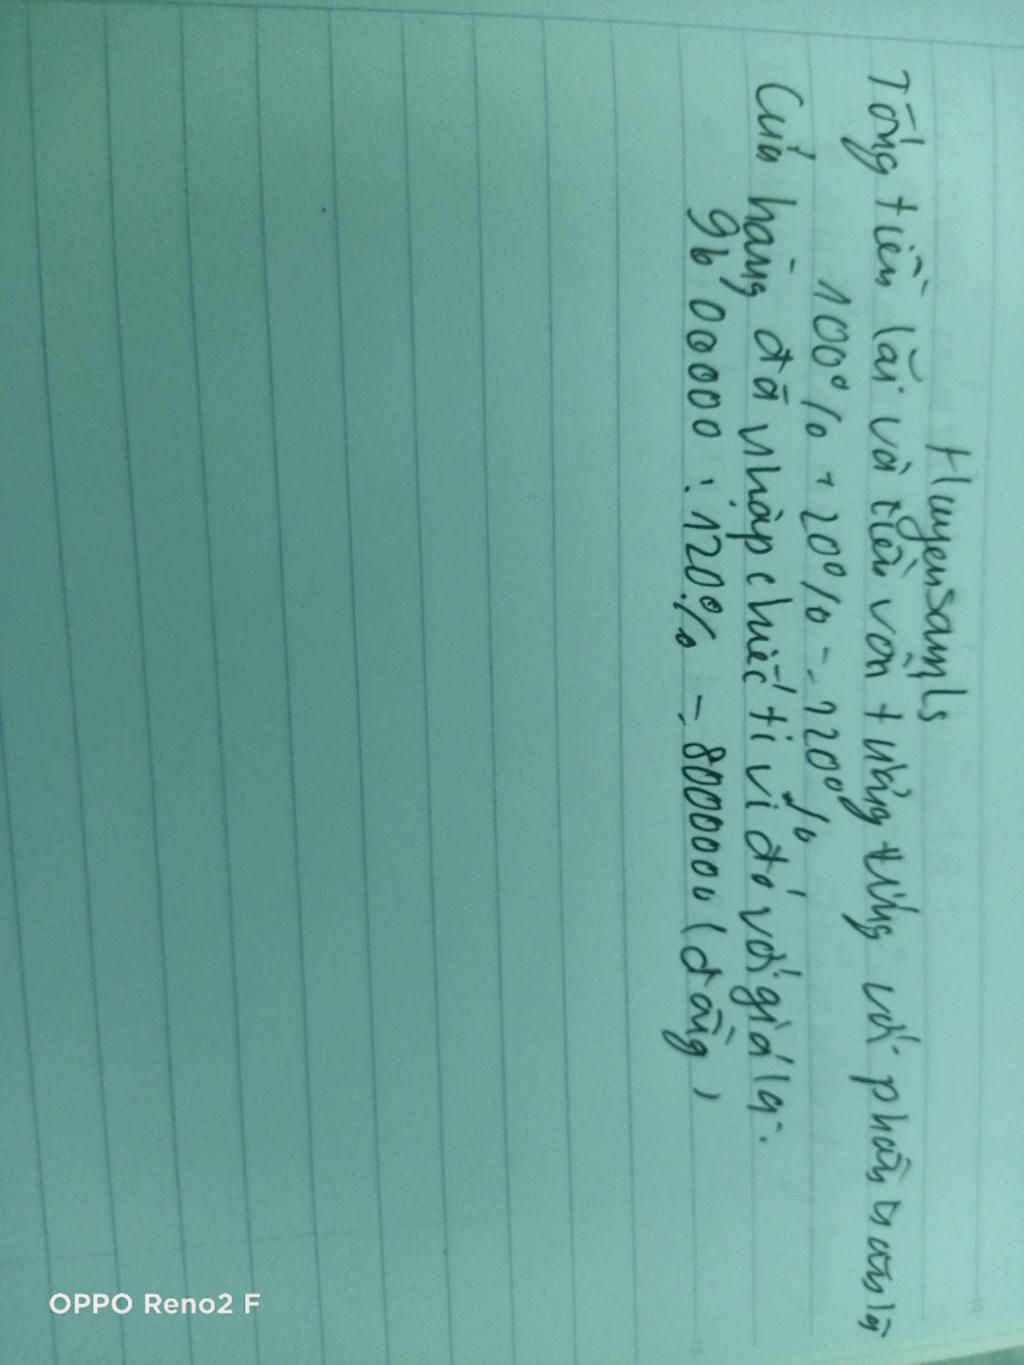 Huyensamls
Tổng tiền lãi và tiền vốn tương ứng với phần trăm là
100% + 20% = 120%
Cửa hàng đã nhập chiếc ti vi đó với giá là:
9600000 : 120% = 8000000 (đồng)
OPPO Reno2 F